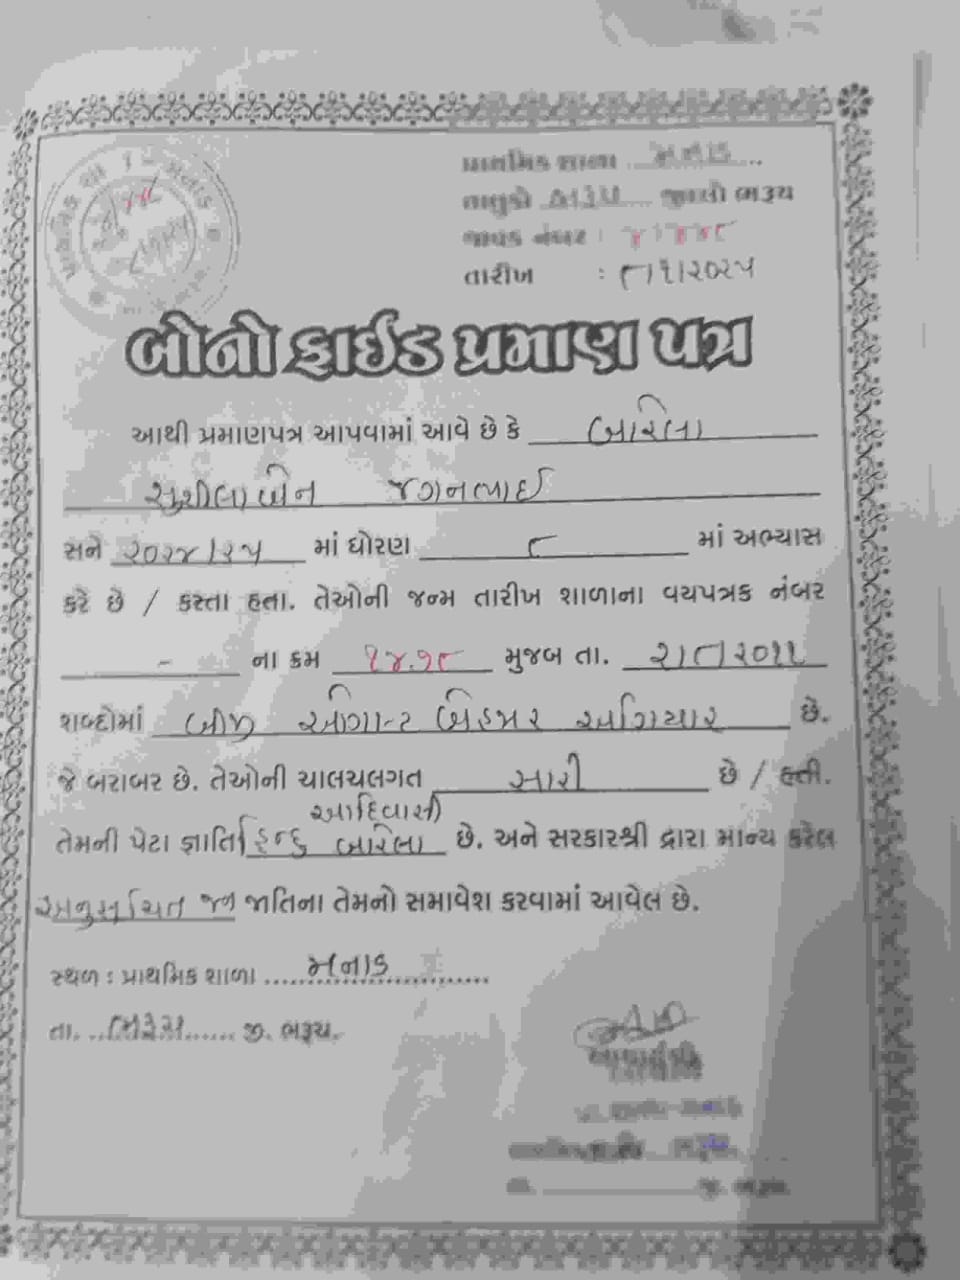 પ્રાથમિક શાળા મનાડ
તાલુકો ભરૂચ જીલ્લો ભરૂચ
જાવક નંબર :
તારીખ : ૮/૧/૨૦૨૫
બોનોફાઈડ પ્રમાણ પત્ર
આથી પ્રમાણપત્ર આપવામાં આવે છે કે બારેલા
સુશીલાબેન જગનભાઈ
સને ૨૦૨૪/૨૫ માં ધોરણ ૮ માં અભ્યાસ
કરે છે / કરતા હતા. તેઓની જન્મ તારીખ શાળાના વયપત્રક નંબર
- ના ક્રમ ૧૪૧૮ મુજબ તા. ૨/૮/૨૦૧૧
શબ્દોમાં બીજી ઓગષ્ટ બેહજાર અગિયાર છે.
જે બરાબર છે. તેઓની ચાલચલગત સારી છે / હતી.
આદિવાસી
તેમની પેટા જ્ઞાતિ હિન્દુ બારેલા છે. અને સરકારશ્રી દ્વારા માન્ય કરેલ
અનુસૂચિત જન જાતિના તેમનો સમાવેશ કરવામાં આવેલ છે.
સ્થળ : પ્રાથમિક શાળા મનાડ
તા. ભરૂચ જી. ભરૂચ.
આચાર્યશ્રી